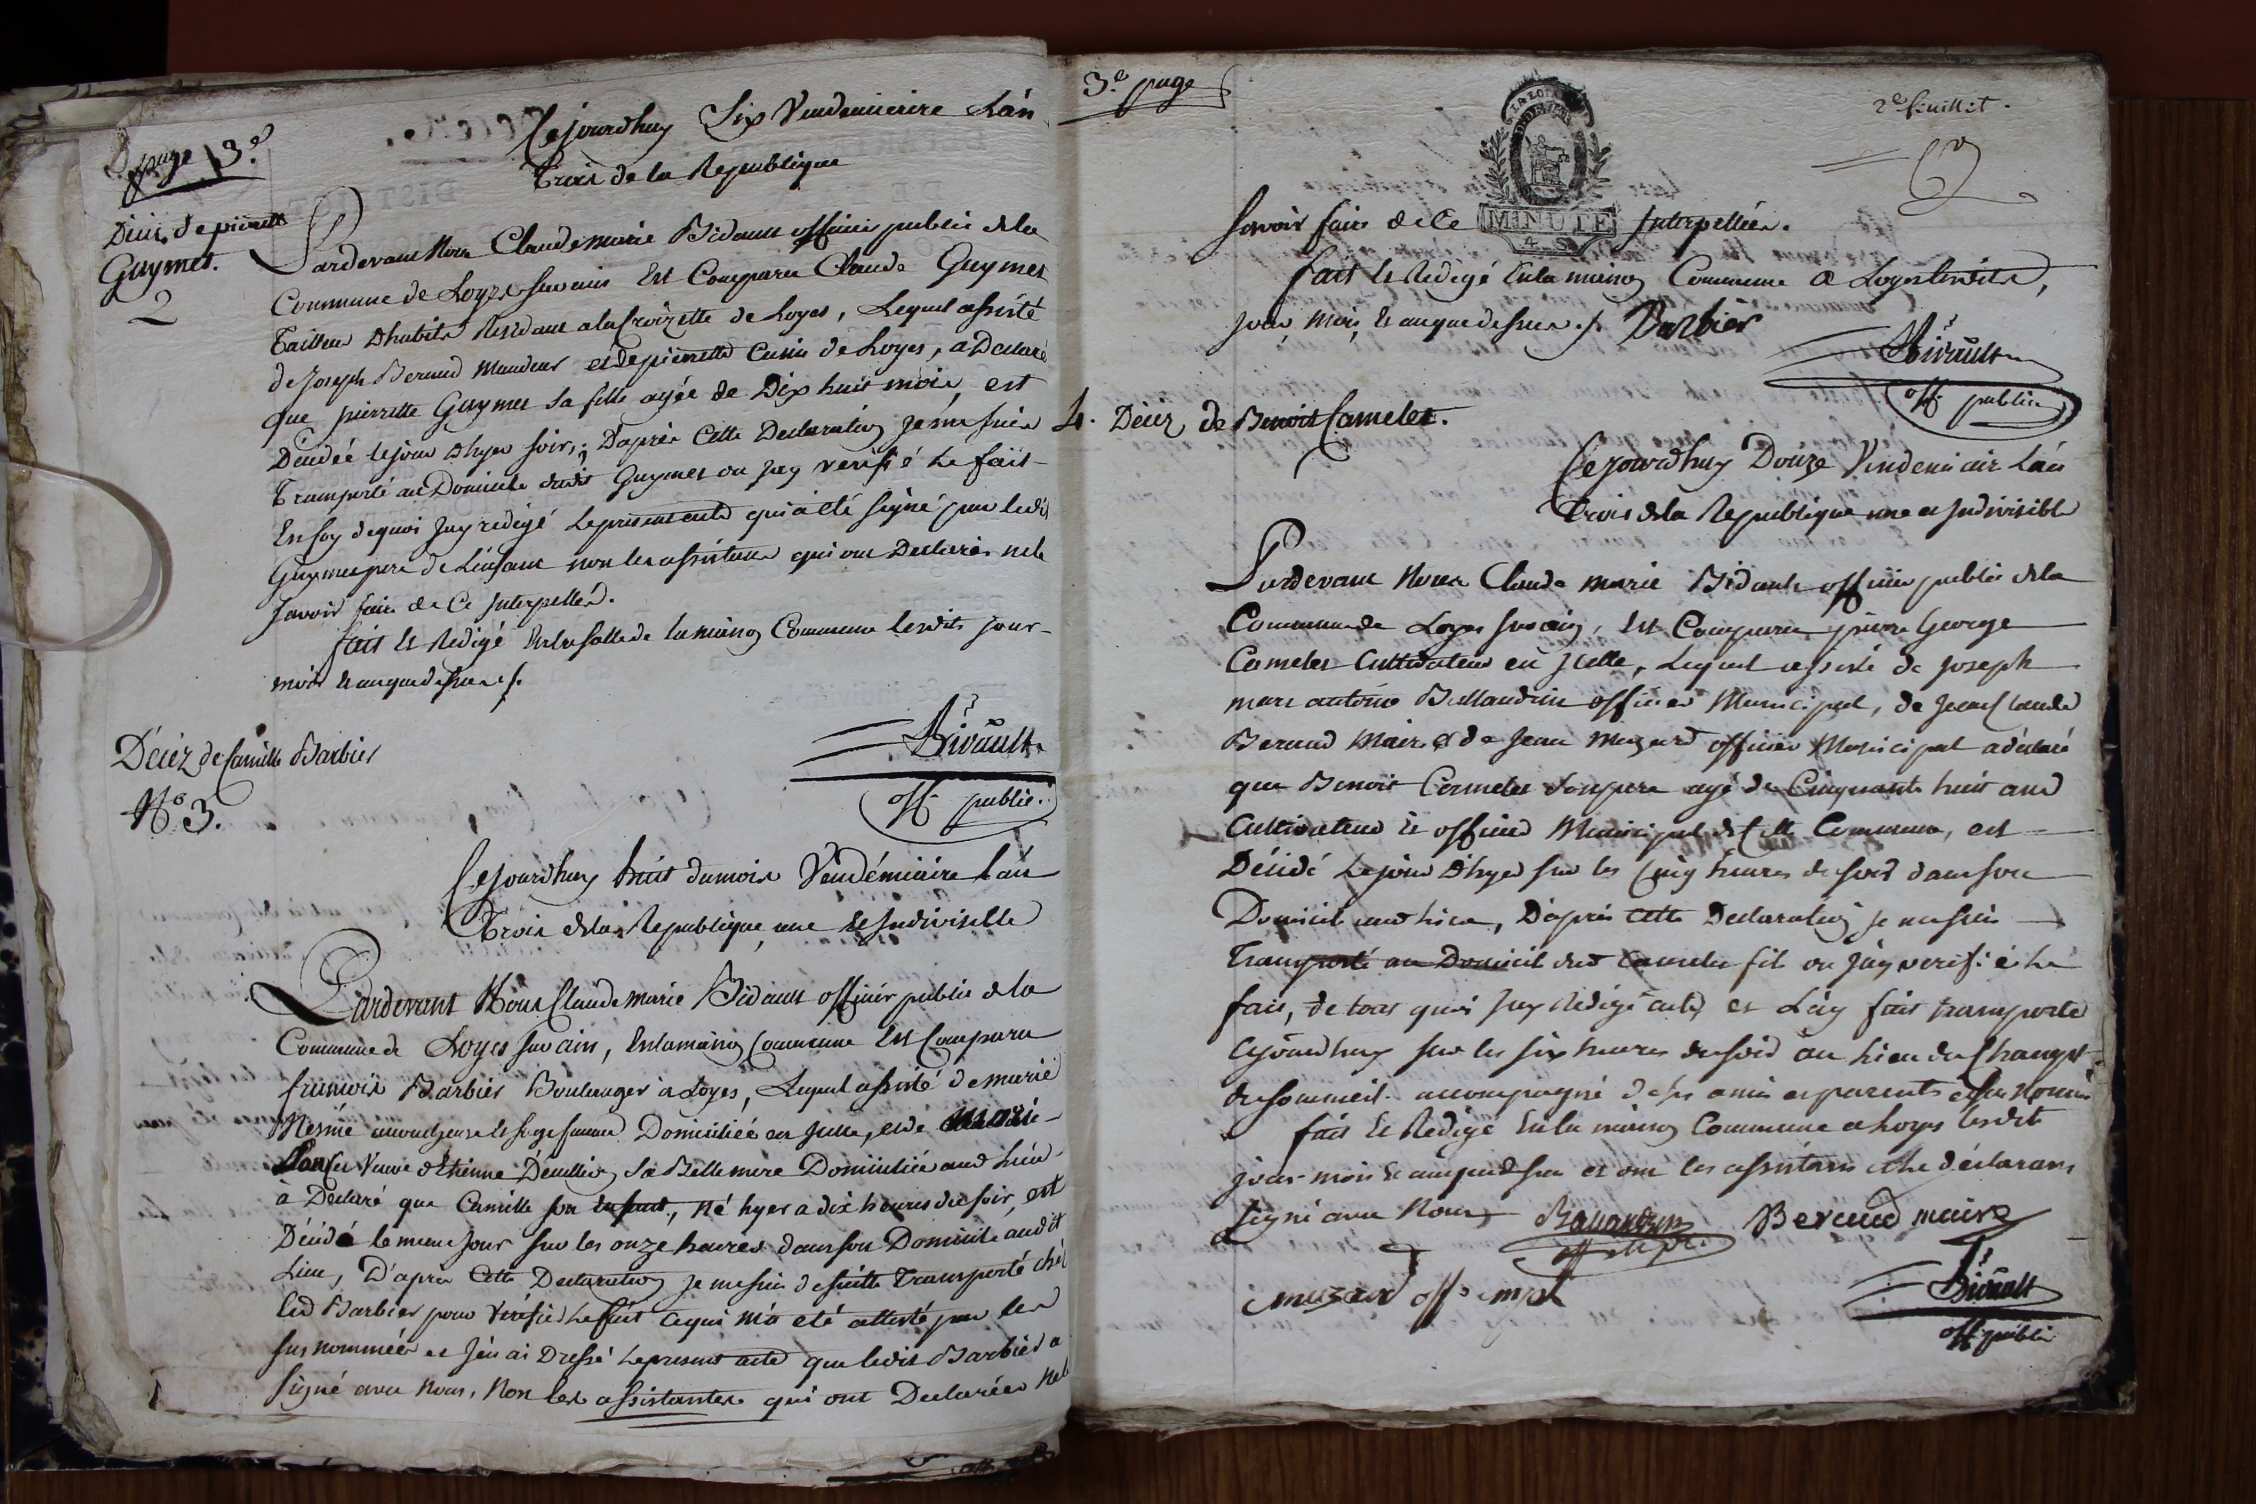 page 3e
Cejourdhuy Six Vendemiaire Lán
Trois de la Republique
Décès de pierrette
Guymet.
2
Pardevant Nous Claude marie Bidault officier public dela
Commune de Loyes sur ain Est Comparu Claude Guymet
Tailleur Dhabits Residant a la Croizette de Loyes, Lequel assisté
de Joseph Beraud Mandeur et de pierrette Cusin de Loyes, a Declaré
que pierrette Guymet sa fille agée de Dix huit mois, est
Decedée le jour Dhyer soir; Daprès Cette Declaration je me suis
Transporté au Domicile dudit Guymet ou Jay verifié Le fait
En foy dequoi Jay redigé Le present acte qui a été signé par ledit
Guymet pere de L'enfant non les assistans qui ont Declarés ne le
Savoir faire de Ce Interpellés.
fait et Redigé En la salle de la maison Commune lesdits jour
mois et an que dessus ./.
Bidault
off. public.
Décéz de Camille Barbier
No 3.
Cejourdhuy huit dumois Vendémiaire L'an
Trois dela Republique, une et Indivisible
Pardevant Nous Claude Marie Bidault officier public dela
Commune de Loyes sur ain, En la maison Commune Est Comparu
francois Barbier Boulanger à Loyes, Lequel assisté de marie
Mesmé accoucheuse et sage femme Domiciliée en Icelle, et de marie
Veuve d'Etienne sa Belle mere Domiciliée aud lieu
à Declaré que Camille son enfant, né hyer a dix heures du soir, est
Décédé le meme jour sur les onze heures dans son Domicile audit
Lieu, D'apres Cette Declaration je me suis de suitte Transporté chés
led Barbier pour Vérifier Le fait ce qui m'a été attesté par les
sus nommées et J'en ai Dressé Le present acte que ledit Barbier a
signé avec Nous, Non les assistantes qui ont Declarées ne le
3.e page
2e feuillet.
LA LOI
MINUTE
4. S
Savoir faire de Ce Interpellées.
fait et Redigé En la maison Commune a Loyes lesdits,
jour, Mois, et an que dessus ./. Barbier
Bidault
off. public
4. Décéz de Benoit Camelet.
Cejourdhuy Douze Vendemiair Lán
Trois dela Republique une et Indivisible
Pardevant Nous Claude marie Bidault officier public dela
Commune de Loyes sur ain, Est Comparu pierre George
Camelet Cultivateur en Icelle, Lequel assisté de Joseph
marc antoine Ballandrin officier Municipal, de Jean Claude
Beraud Maire & de Jean Muzard officier Municipal a déclaré
que Benoit Camelet son pere agé de Cinquante huit ans
Cultivateur et officier Municipal de Cette Commune, est
Décédé Le jour D'hyer sur les Cinq heures du soir dans son
Domicil aud lieu, D'après Cette Declaration je me suis
Transporté au Domicil dud Camelet fils ou J'ay verifié Le
fait, de tout quoi Jay Redigé acte, et L'ay fait transporté
Cejourdhuy sur les six heures du soir au lieu du Champt
du sommeil accompagné de ses amis et parents
fait et Redigé En la maison Commune a Loyes lesdit
jour mois et an que dessus et ont les assistans et le déclarant
signé avec Nous
Ballandrin
Beraud maire
off m.pl.
muzard off. mpl
Bidault
off. public